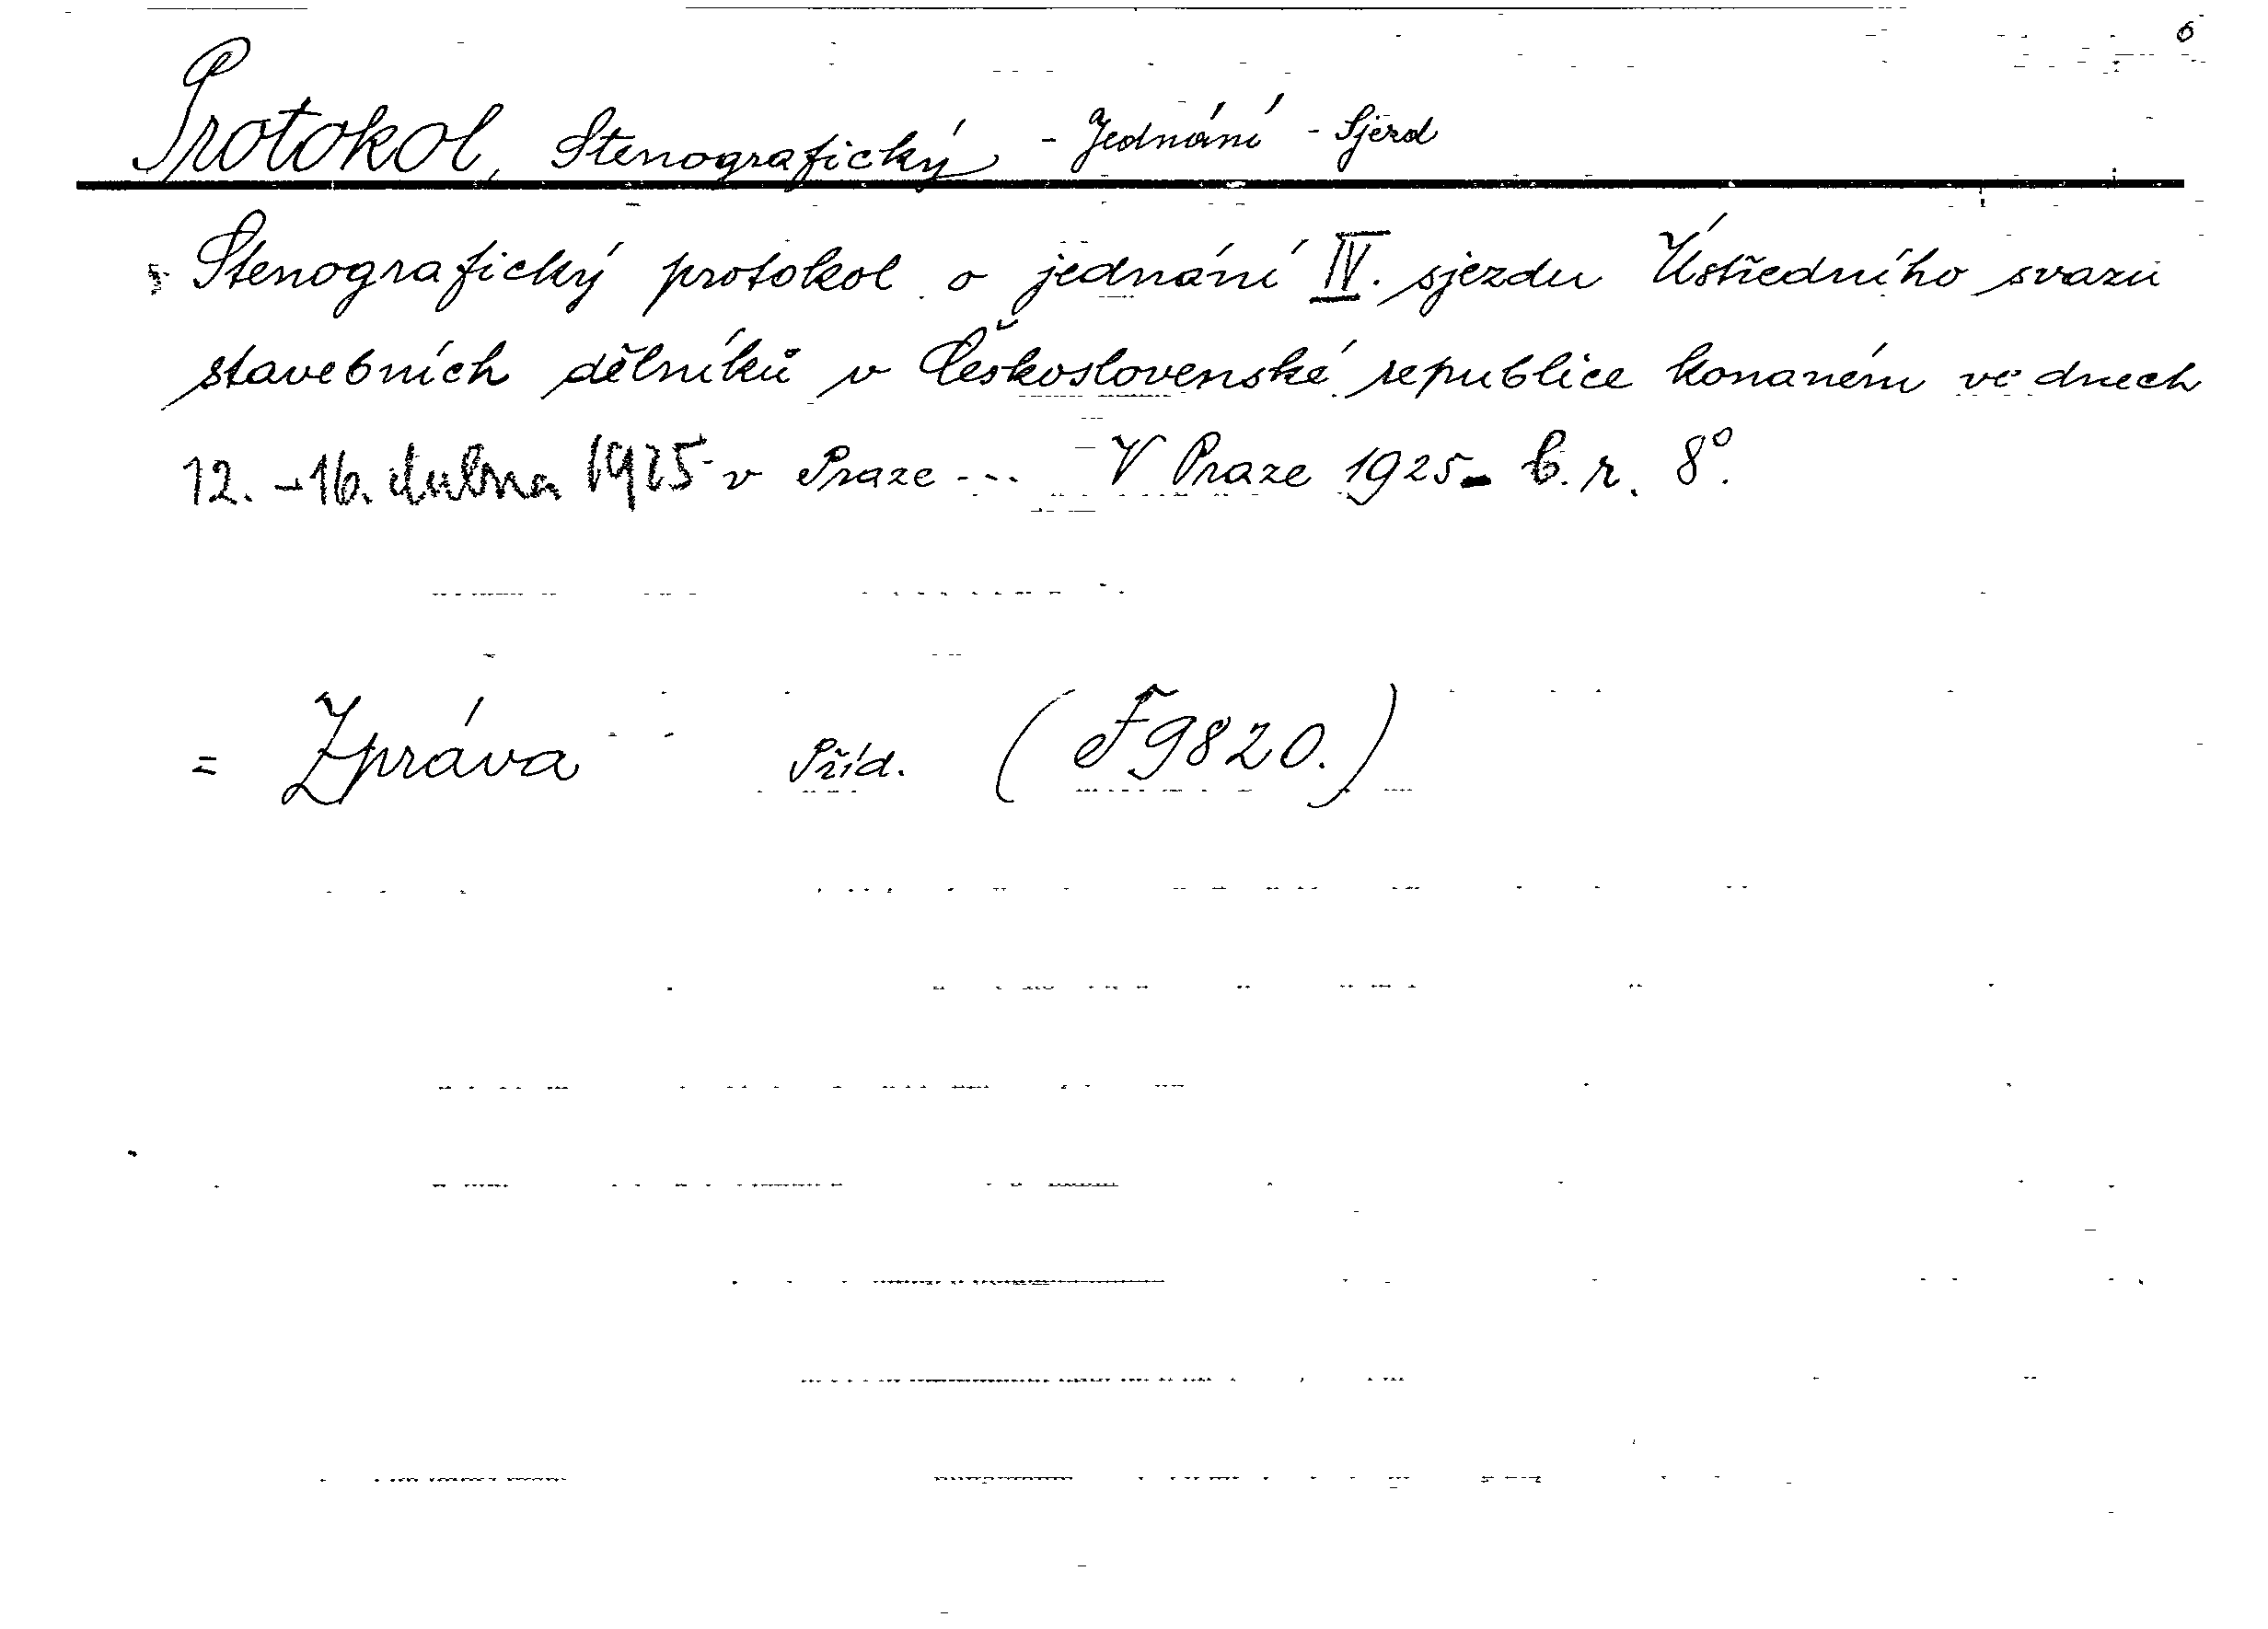 6
Protokol, Stenografický - Jednání - Sjezd
Stenografický protokol o jednání IV. sjezdu Ústředního svazu
stavebních dělníků v Československé republice konaném ve dnech
12. - 16. dubna 1925 v Praze ... V Praze 1925 - b. r. 8°.
= Zpráva Příd. (F 9820.)